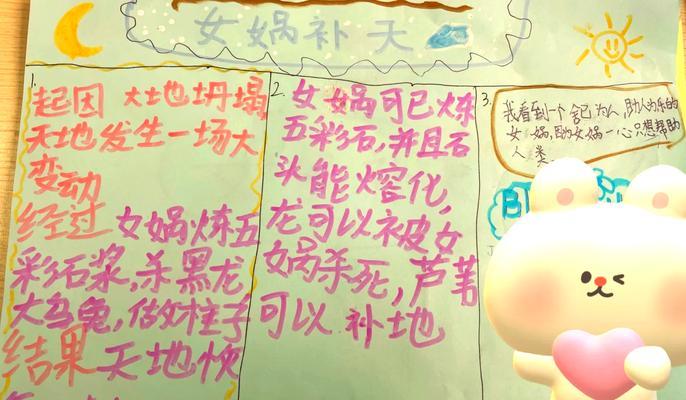 女娲补天
1.
起因 大地坍塌,
天地发生一场大
变动
经过 女娲炼五
彩石浆,杀黑龙
大乌龟,做柱子
结果 天地恢
2.
女娲可已炼
五彩石,并且石
头能熔化,
龙可以被女
娲杀死,芦苇
可以补地
3.
我看到一个舍己为人,助人为乐的
女娲,因为女娲一心只想帮助
人类